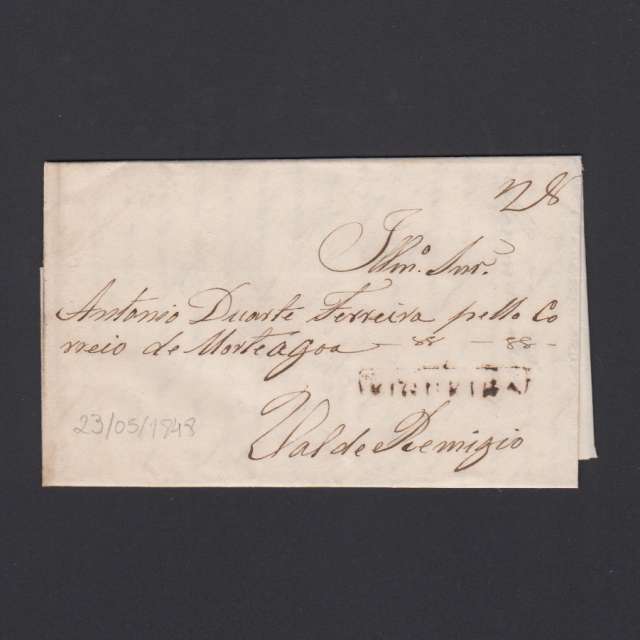 Illmo. Snr.
Antonio Duarte Ferreira pello Co
rreio de Morteágoa
23/05/1848
Val de Remigio